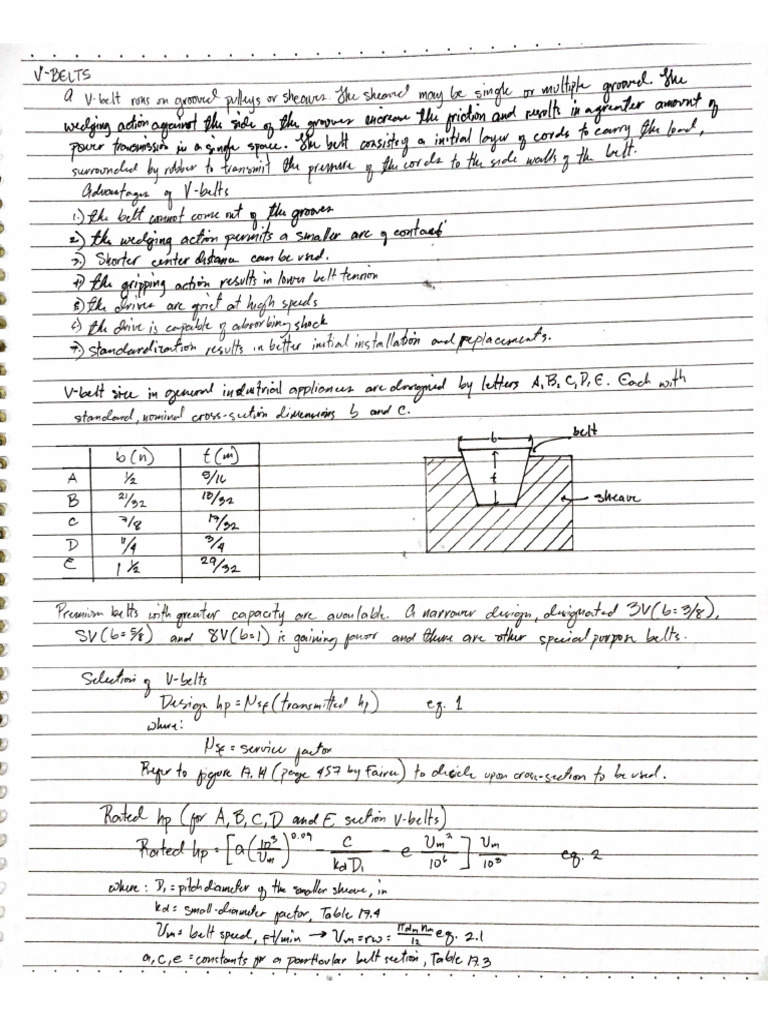 V-BELTS
A V-belt runs on grooved pulleys or sheaves. The sheaved may be single or multiple grooved. The
wedging action against the side of the grooves increase the friction and results in a greater amount of
power transmission in a single space. The belt consisting a initial layer of cords to carry the load,
surrounded by rubber to transmit the pressure of the cords to the side walls of the belt.
Advantages of V-belts
1.) the belt cannot come out of the grooves
2.) the wedging action permits a smaller arc of contact
3.) Shorter center distance can be used.
4.) the gripping action results in lower belt tension
5.) the drives are quiet at high speeds
6.) the drive is capable of absorbing shock
7.) standardization results in better initial installation and replacements.
V-belt size in general industrial appliances are designed by letters A, B, C, D, E. Each with
standard, nominal cross-section dimensions b and c.
b (n) t (m)
A 1/2 9/16
B 21/32 10/32
C 7/8 17/32
D 11/4 3/4
E 1 1/2 29/32
b
belt
t
sheave
Premium belts with greater capacity are available. A narrower design, designated 3V (b=3/8),
5V (b=5/8) and 8V (b=1) is gaining power and there are other special purpose belts.
Selection of V-belts
Design hp = Nsf (transmitted hp) eq. 1
where:
Nsf = service factor
Refer to figure 17.14 (page 457 by Faires) to decide upon cross-section to be used.
Rated hp (for A, B, C, D and E section V-belts)
Rated hp = [a(10³/Vm)^0.09 - c/kdD₁ - e Vm²/10⁶] Vm/10³ eq. 2
where: D₁ = pitch diameter of the smaller sheave, in
kd = small-diameter factor, Table 17.4
Vm = belt speed, ft/min → Vm = rω = πdₙnₙ/12 eq. 2.1
a, c, e = constants for a particular belt section, Table 17.3